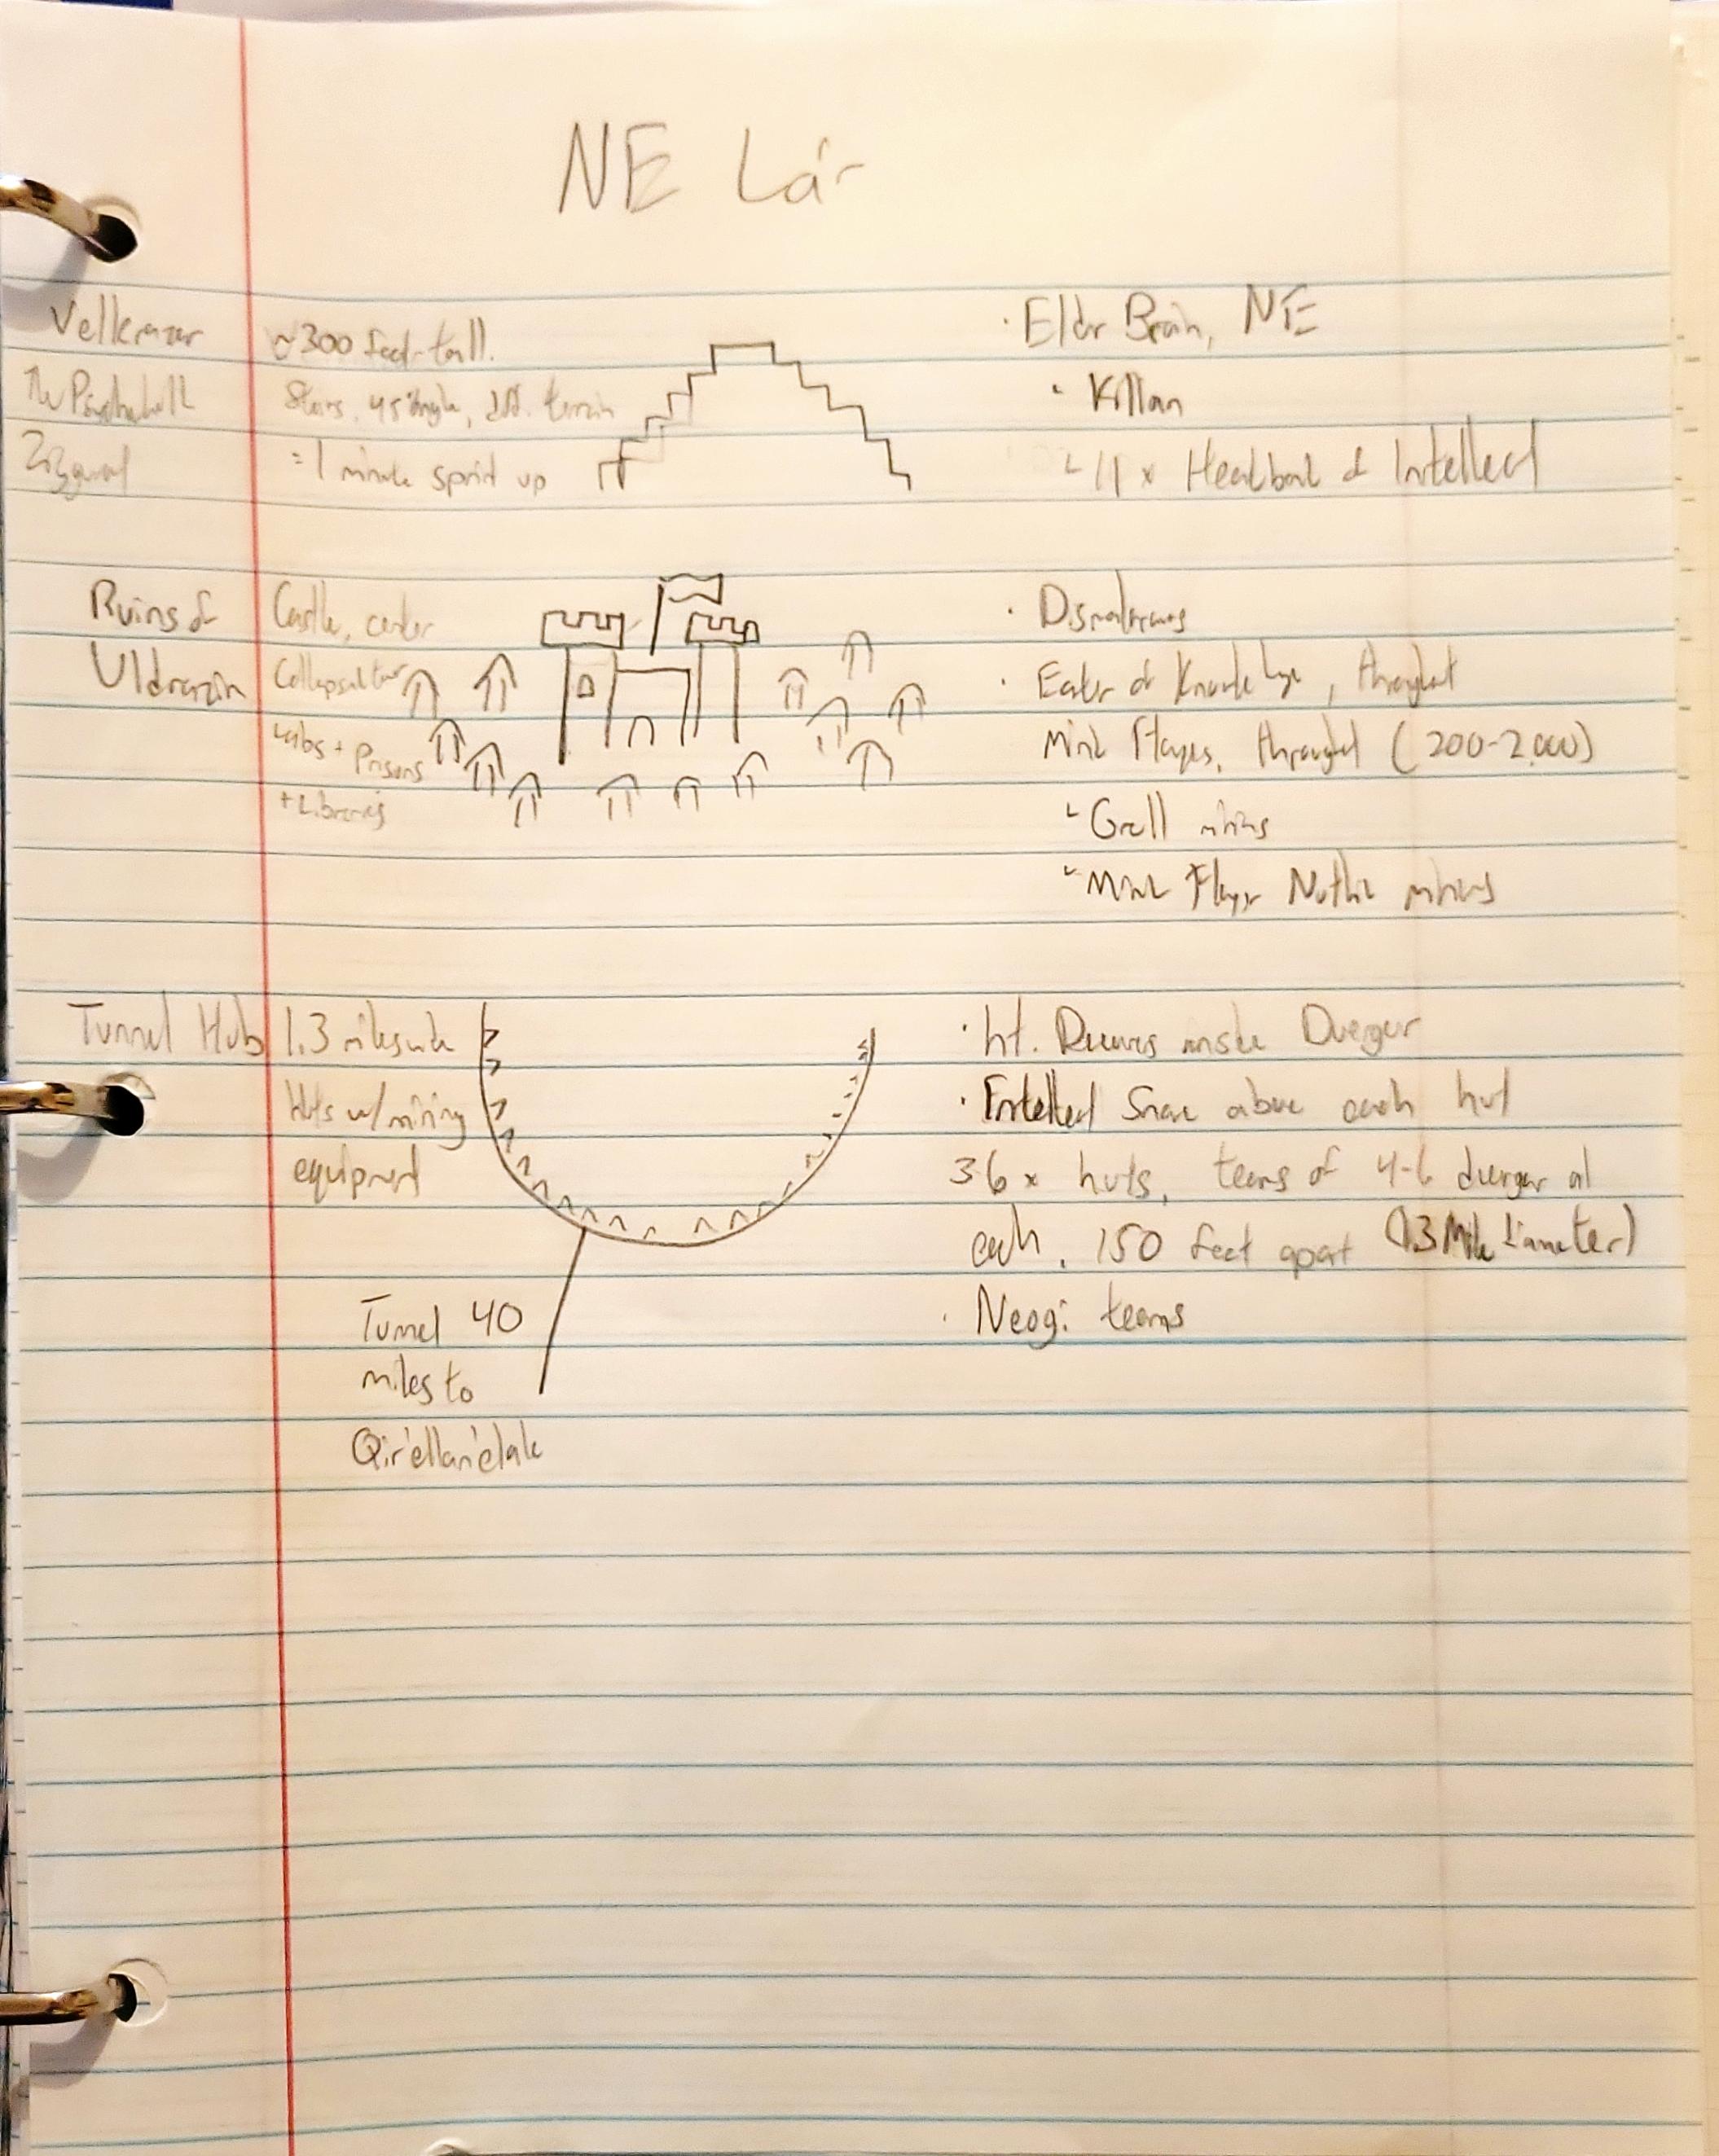 NE Lár
Velkrazar
The
~300 feet tall.
Stairs, 45° angle, diff. terrain
= 1 minute sprint up
· Elder Brain, NE
· Killian
11 x Headband of Intellect
Ruins of
Uldrazin
Castle, center
Labs + Prisons
+ Libraries
·
· Eater of Knowledge, throughout
Mind Flayers, throughout (200-2,000)
Grell minis
Mind Flayer Nothic minis
Tunnel Hub
1.3 miles wide
Huts w/ mining
equipment
Tunnel 40
miles to
Qir'ellan'elak
· Duergar
· Intellect Snare above each hut
36 x huts, teams of 4-6 duergar at
each, 150 feet apart (1.3 Mile diameter)
· Neogi teams